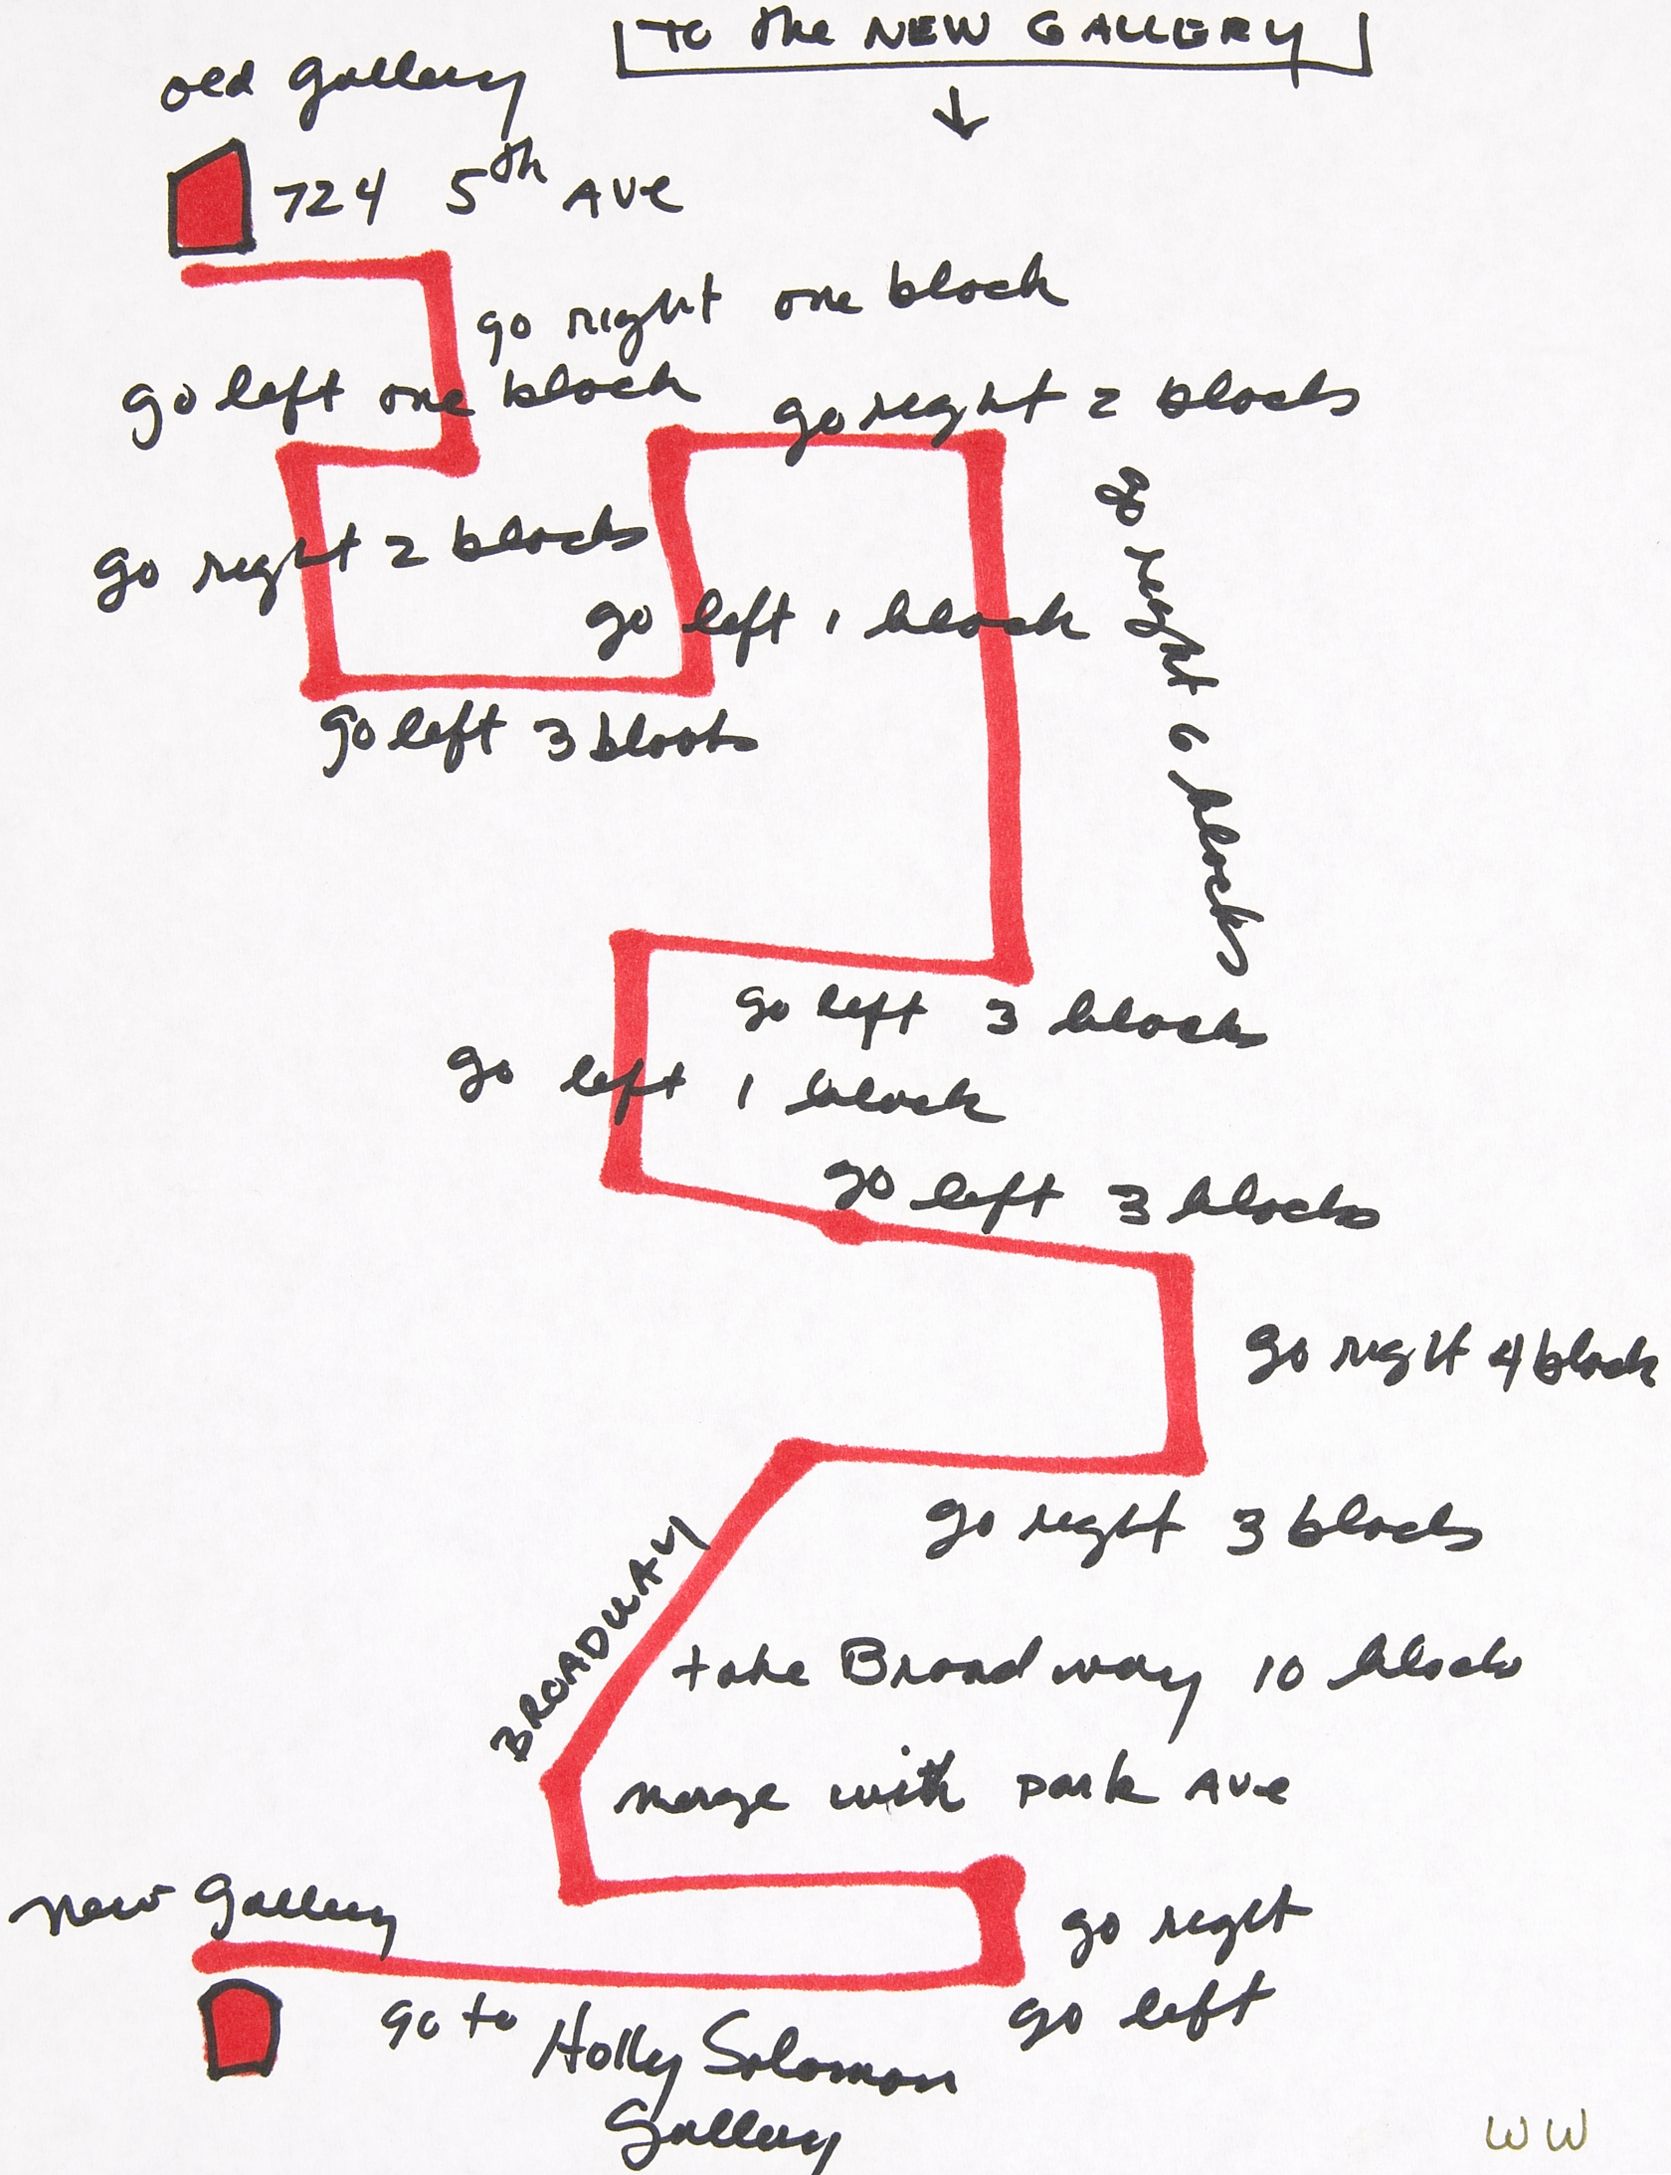 TO the NEW GALLERY
old gallery
724 5th Ave
go right one block
go left one block
go right 2 blocks
go right 6 blocks
go right 2 blocks
go left 1 block
go left 3 blocks
go left 3 blocks
go left 1 block
go left 3 blocks
go right 4 block
go right 3 blocks
BROADWAY
take Broadway 10 blocks
merge with Park Ave
new gallery
go right
go left
go to Holly Solomon
Gallery
WW